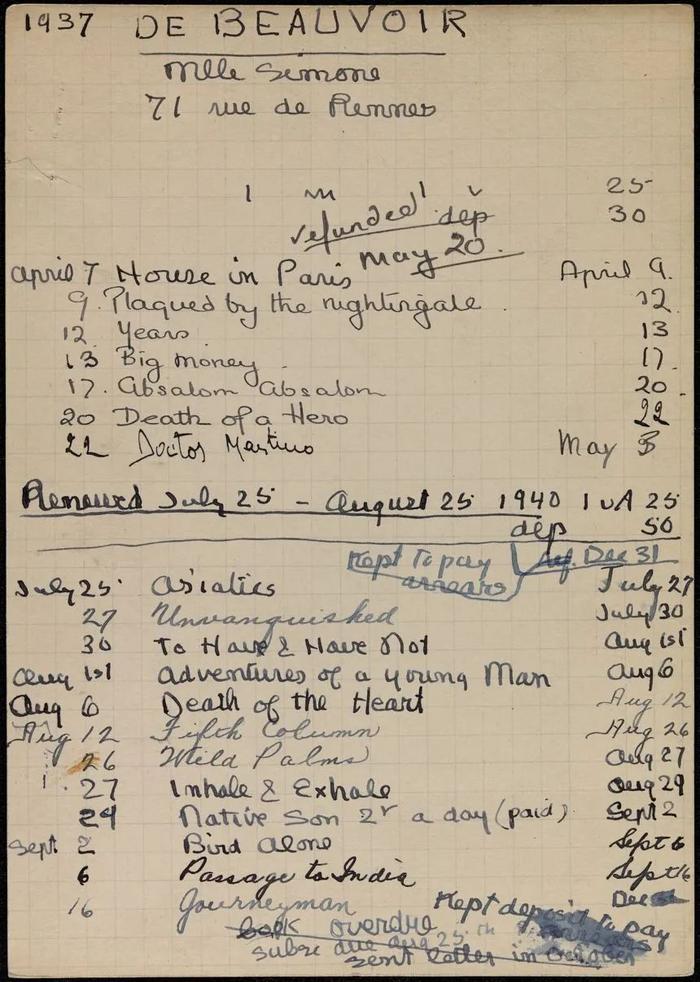 1937 DE BEAUVOIR
Mlle Simone
71 rue de Rennes
1 m v 25
refunded dep 30
May 20.
april 7 House in Paris April 9.
9. Plagued by the nightingale. 12
12 Years 13
13 Big money. 17.
17. Absalom Absalom 20
20 Death of a Hero 22
22 Doctor Martino May 3
Renewed July 25 - August 25 1940 1 v A 25
dep 50
Kept to pay Dec 31
arrears
July 25 Asiatics July 27
27 Unvanquished July 30
30 To Have & Have Not Aug 1st
Aug 1st Adventures of a young Man Aug 6
Aug 6 Death of the Heart Aug 12
Aug 12 Fifth Column Aug 26
26 Wild Palms Aug 27
27 Inhale & Exhale Aug 29
29 Native Son 2r a day (paid) Sept 2
Sept 2 Bird Alone Sept 6
6 Passage to India Sept 16
16 Journeyman Dec
Kept deposit to pay
book overdue
subsc due aug 25th
sent letter in October